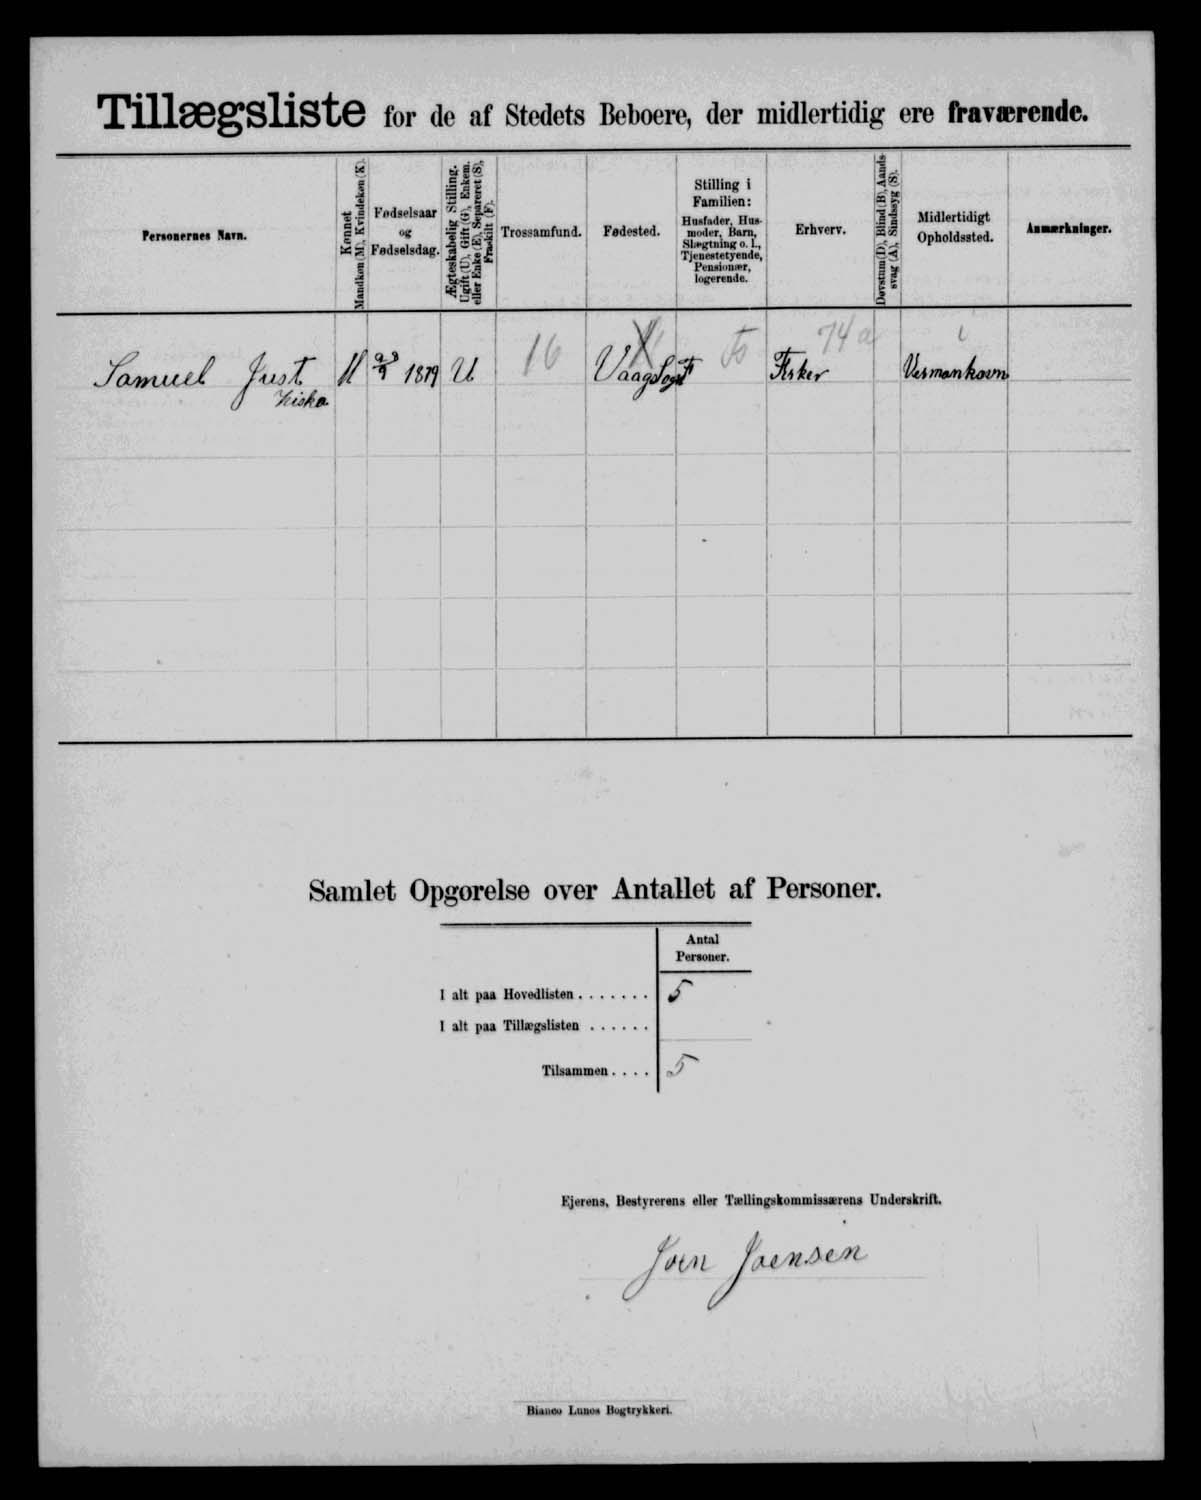 Tillægsliste for de af Stedets Beboere, der midlertidig ere fraværende.
Personernes Navn.
Kønnet
Mandkøn (M), Kvindekøn (K).
Fødselsaar
og
Fødselsdag.
Ægteskabelig Stilling.
Ugift (U), Gift (G), Enkem.
eller Enke (E), Separeret (S),
Fraskilt (F).
Trossamfund.
Fødested.
Stilling i
Familien:
Husfader, Hus-
moder, Barn,
Slægtning o. l.,
Tjenestetyende,
Pensionær,
logerende.
Erhverv.
Døvstum (D), Blind (B), Aands-
svag (A), Sindssyg (S).
Midlertidigt
Opholdssted.
Anmærkninger.
Samuel Just M 1879 U 16 Vaag Sogn F Fo Fisker 74 a
Samlet Opgørelse over Antallet af Personer.
Antal
Personer.
I alt paa Hovedlisten . . . . . . . 5
I alt paa Tillægslisten . . . . . .
Tilsammen . . . . 5
Ejerens, Bestyrerens eller Tællingskommissærens Underskrift.
Joen Joensen
Bianco Lunos Bogtrykkeri.